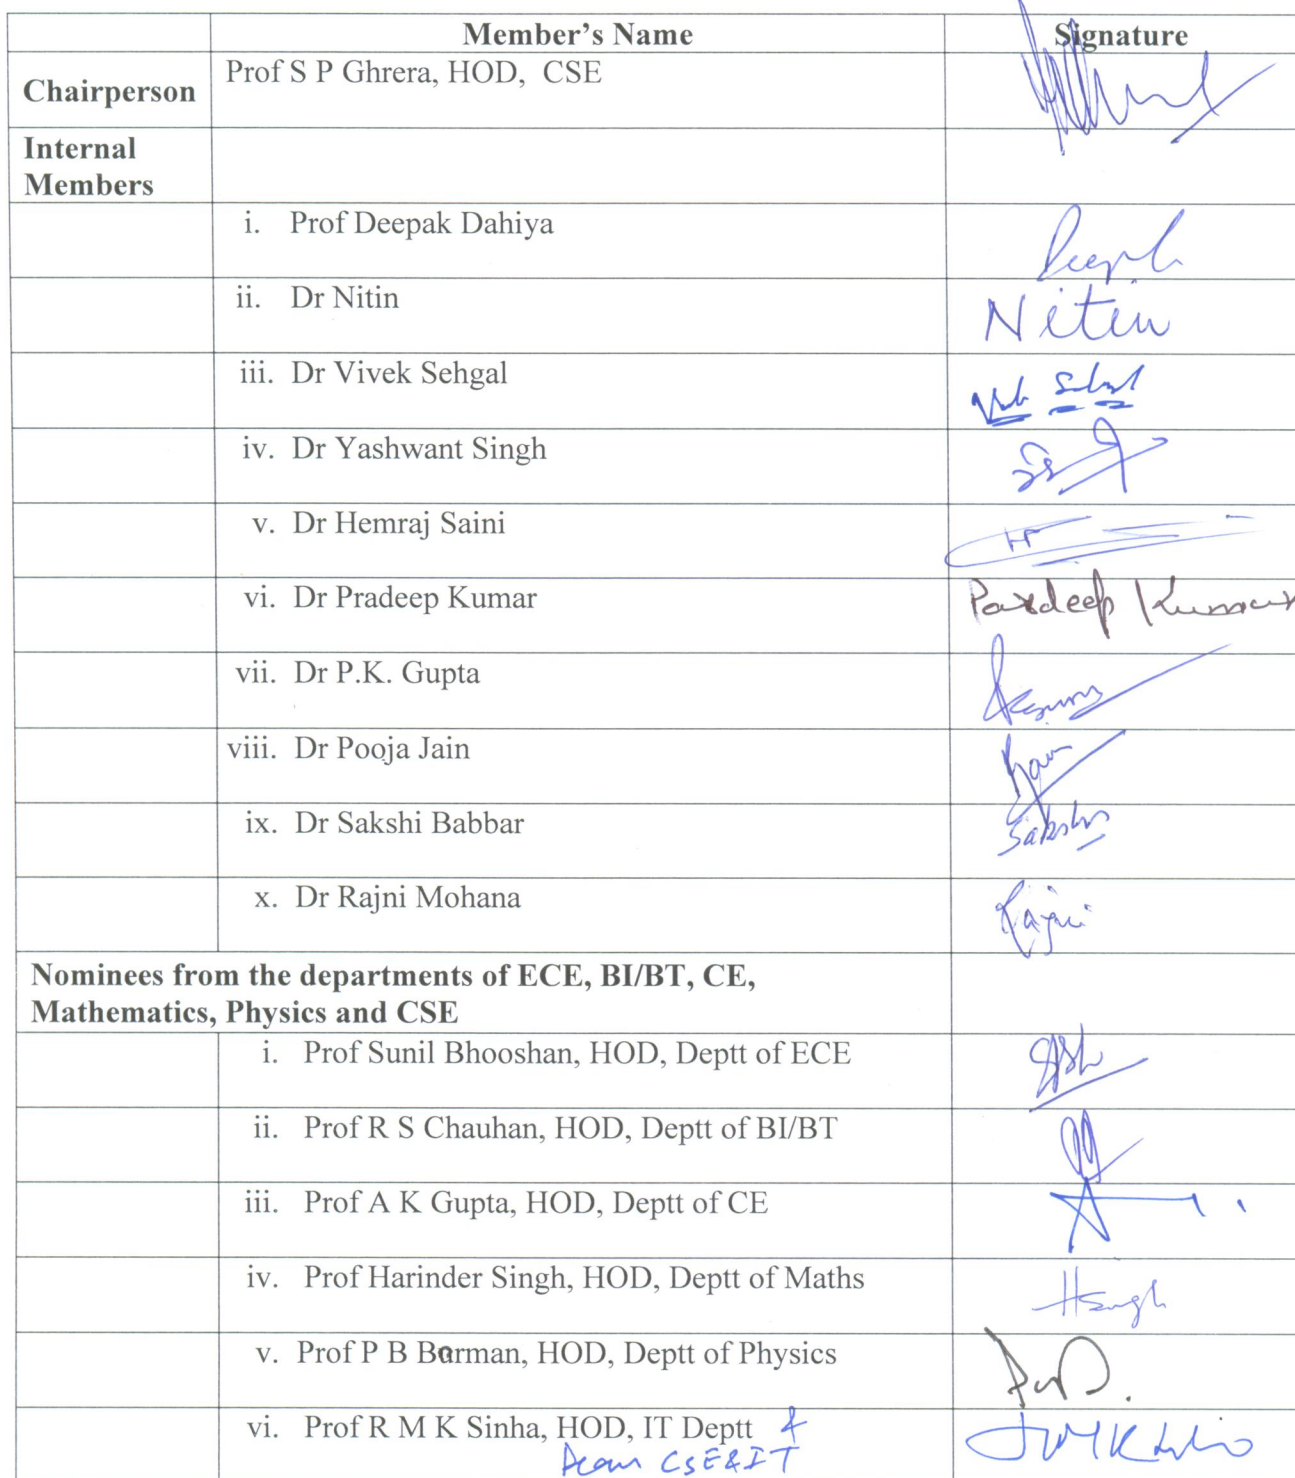 Member's Name Signature
Chairperson Prof S P Ghrera, HOD, CSE
Internal
Members
i. Prof Deepak Dahiya
ii. Dr Nitin Nitin
iii. Dr Vivek Sehgal
iv. Dr Yashwant Singh
v. Dr Hemraj Saini
vi. Dr Pradeep Kumar Pardeep Kumar
vii. Dr P.K. Gupta
viii. Dr Pooja Jain
ix. Dr Sakshi Babbar Sakshi
x. Dr Rajni Mohana Rajni
Nominees from the departments of ECE, BI/BT, CE,
Mathematics, Physics and CSE
i. Prof Sunil Bhooshan, HOD, Deptt of ECE
ii. Prof R S Chauhan, HOD, Deptt of BI/BT
iii. Prof A K Gupta, HOD, Deptt of CE
iv. Prof Harinder Singh, HOD, Deptt of Maths HSingh
v. Prof P B Barman, HOD, Deptt of Physics
vi. Prof R M K Sinha, HOD, IT Deptt &
Dean CSE&IT